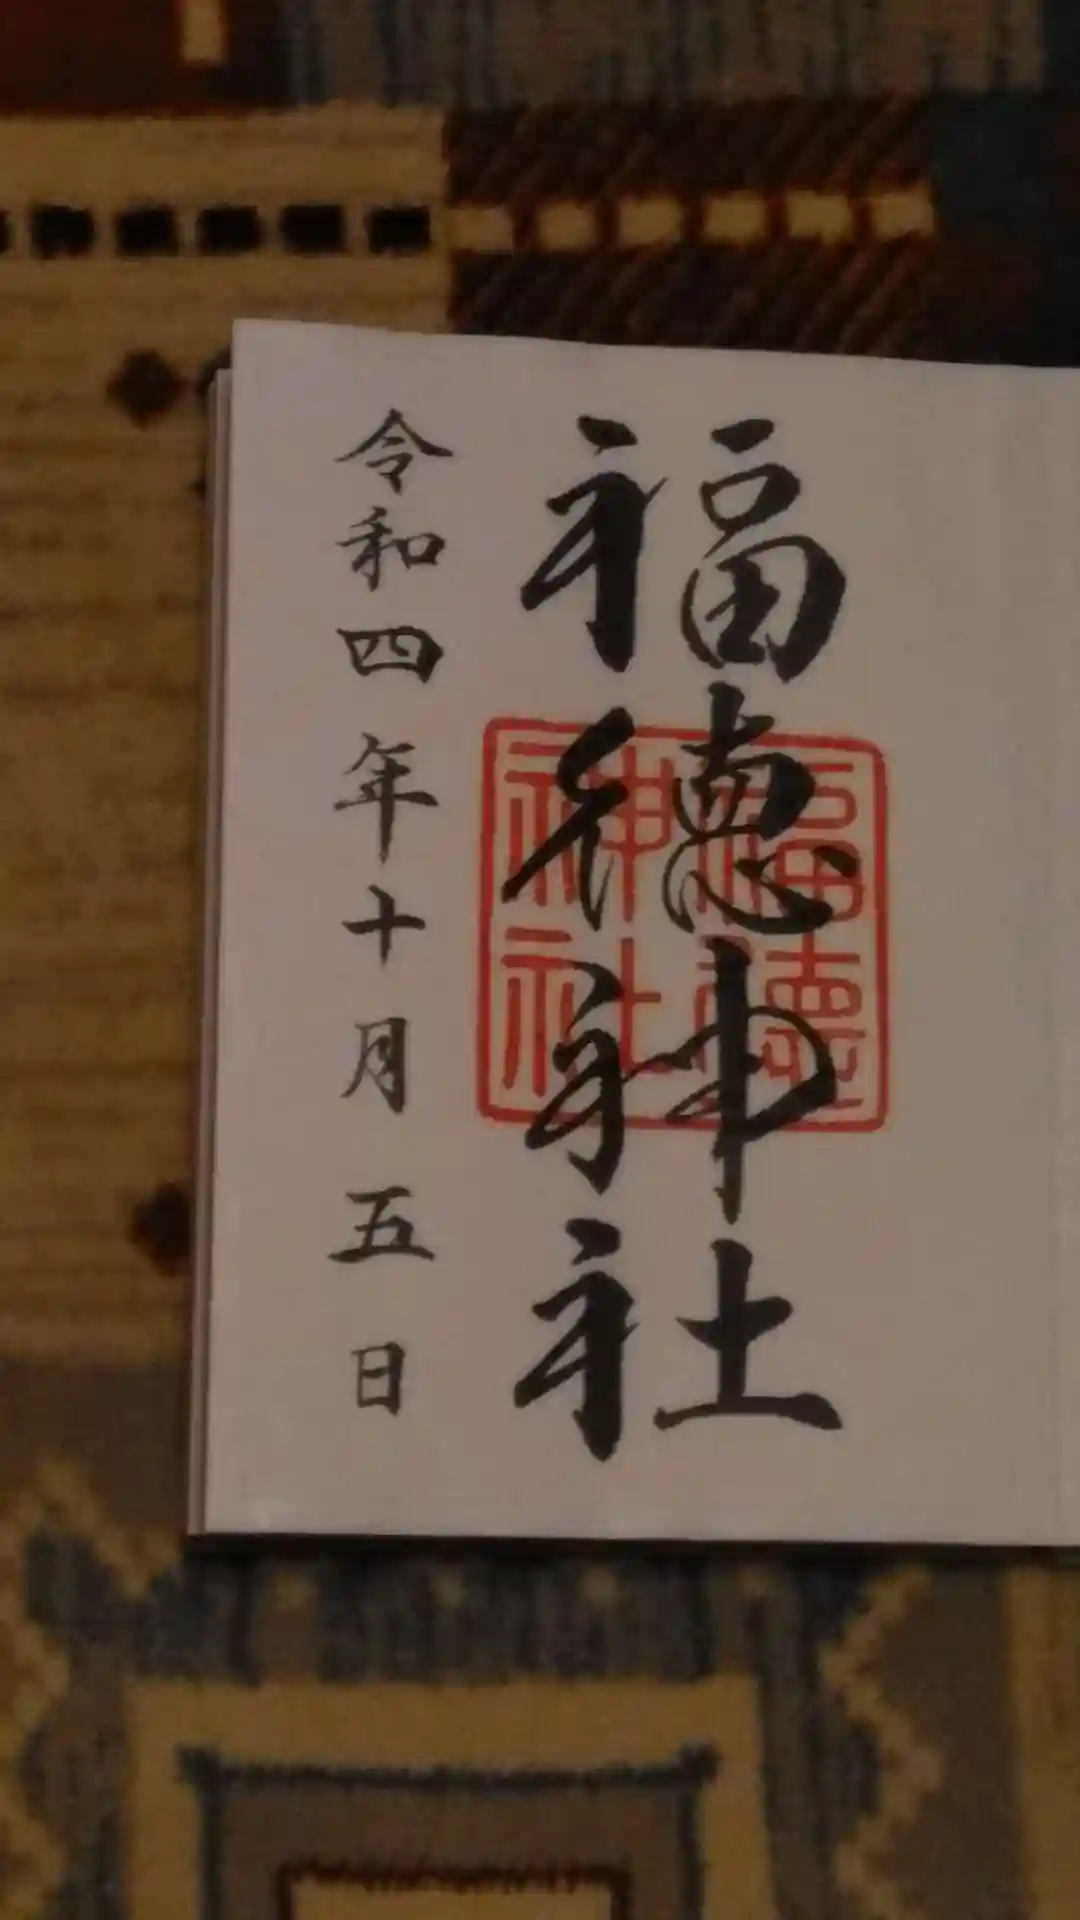 福徳神社
福徳神社
令和四年十月五日